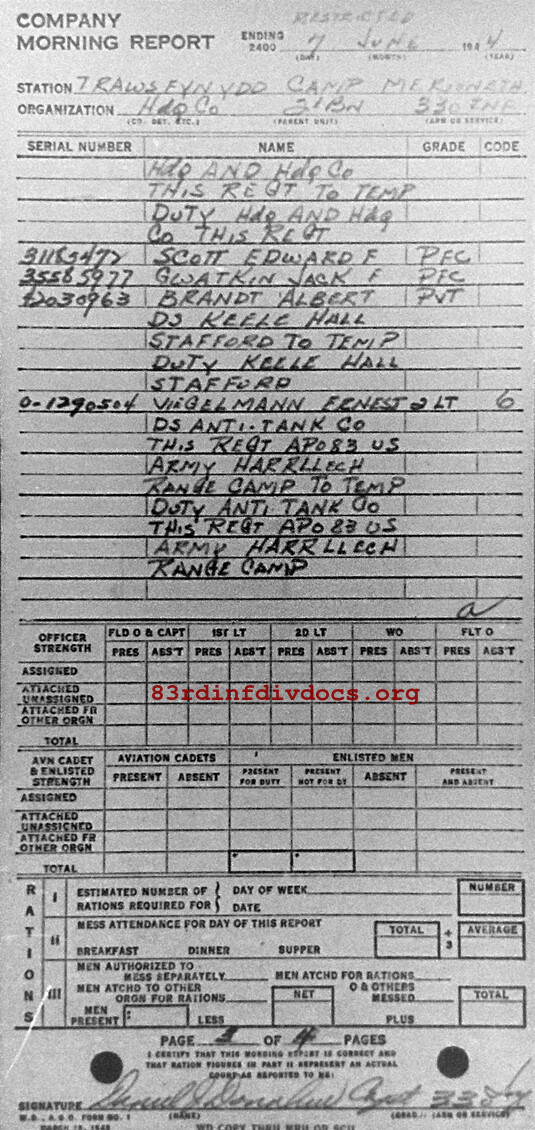 RESTRICTED
COMPANY
MORNING REPORT
ENDING
2400
7 JUNE 1944
(DAY) (MONTH) (YEAR)
STATION TRAWSFYNYDD CAMP MERIONETH
ORGANIZATION Hdq Co 2d BN 330 INF
(CO. DET. ETC.) (PARENT UNIT) (ARM OR SERVICE)
SERIAL NUMBER NAME GRADE CODE
Hdq AND Hdq Co
THIS REGT TO TEMP
DUTY Hdq AND Hdq
CO THIS REGT
31185477 SCOTT EDWARD F PFC
35585977 GWATKIN JACK F PFC
42030963 BRANDT ALBERT PVT
DS KEELE HALL
STAFFORD TO TEMP
DUTY KEELE HALL
STAFFORD
O-1290504 VIEGELMANN ERNEST 2 LT 6
DS ANTI-TANK CO
THIS REGT APO 83 US
ARMY HARRLLECH
RANGE CAMP TO TEMP
DUTY ANTI TANK CO
THIS REGT APO 83 US
ARMY HARRLLECH
RANGE CAMP
a
OFFICER STRENGTH FLD O & CAPT 1ST LT 2D LT WO FLT O
PRES ABS'T PRES ABS'T PRES ABS'T PRES ABS'T PRES ABS'T
ASSIGNED
ATTACHED UNASSIGNED
ATTACHED FR OTHER ORGN
TOTAL
83rdinfdivdocs.org
AVN CADET & ENLISTED STRENGTH AVIATION CADETS ENLISTED MEN
PRESENT ABSENT PRESENT FOR DUTY PRESENT NOT FOR DY ABSENT PRESENT AND ABSENT
ASSIGNED
ATTACHED UNASSIGNED
ATTACHED FR OTHER ORGN
TOTAL
RATIONS
I ESTIMATED NUMBER OF RATIONS REQUIRED FOR DAY OF WEEK DATE NUMBER
II MESS ATTENDANCE FOR DAY OF THIS REPORT TOTAL ÷ 3 AVERAGE
BREAKFAST DINNER SUPPER
III MEN AUTHORIZED TO MESS SEPARATELY MEN ATCHD FOR RATIONS
MEN ATCHD TO OTHER ORGN FOR RATIONS NET O & OTHERS MESSED TOTAL
MEN PRESENT : LESS PLUS
PAGE 3 OF 4 PAGES
I CERTIFY THAT THIS MORNING REPORT IS CORRECT AND
THAT RATION FIGURES IN PART II REPRESENT AN ACTUAL
COUNT AS REPORTED TO ME:
SIGNATURE Capt 330 Inf
W.D., A.G.O. FORM NO. 1 (NAME) (GRAD.) (ARM OR SERVICE)